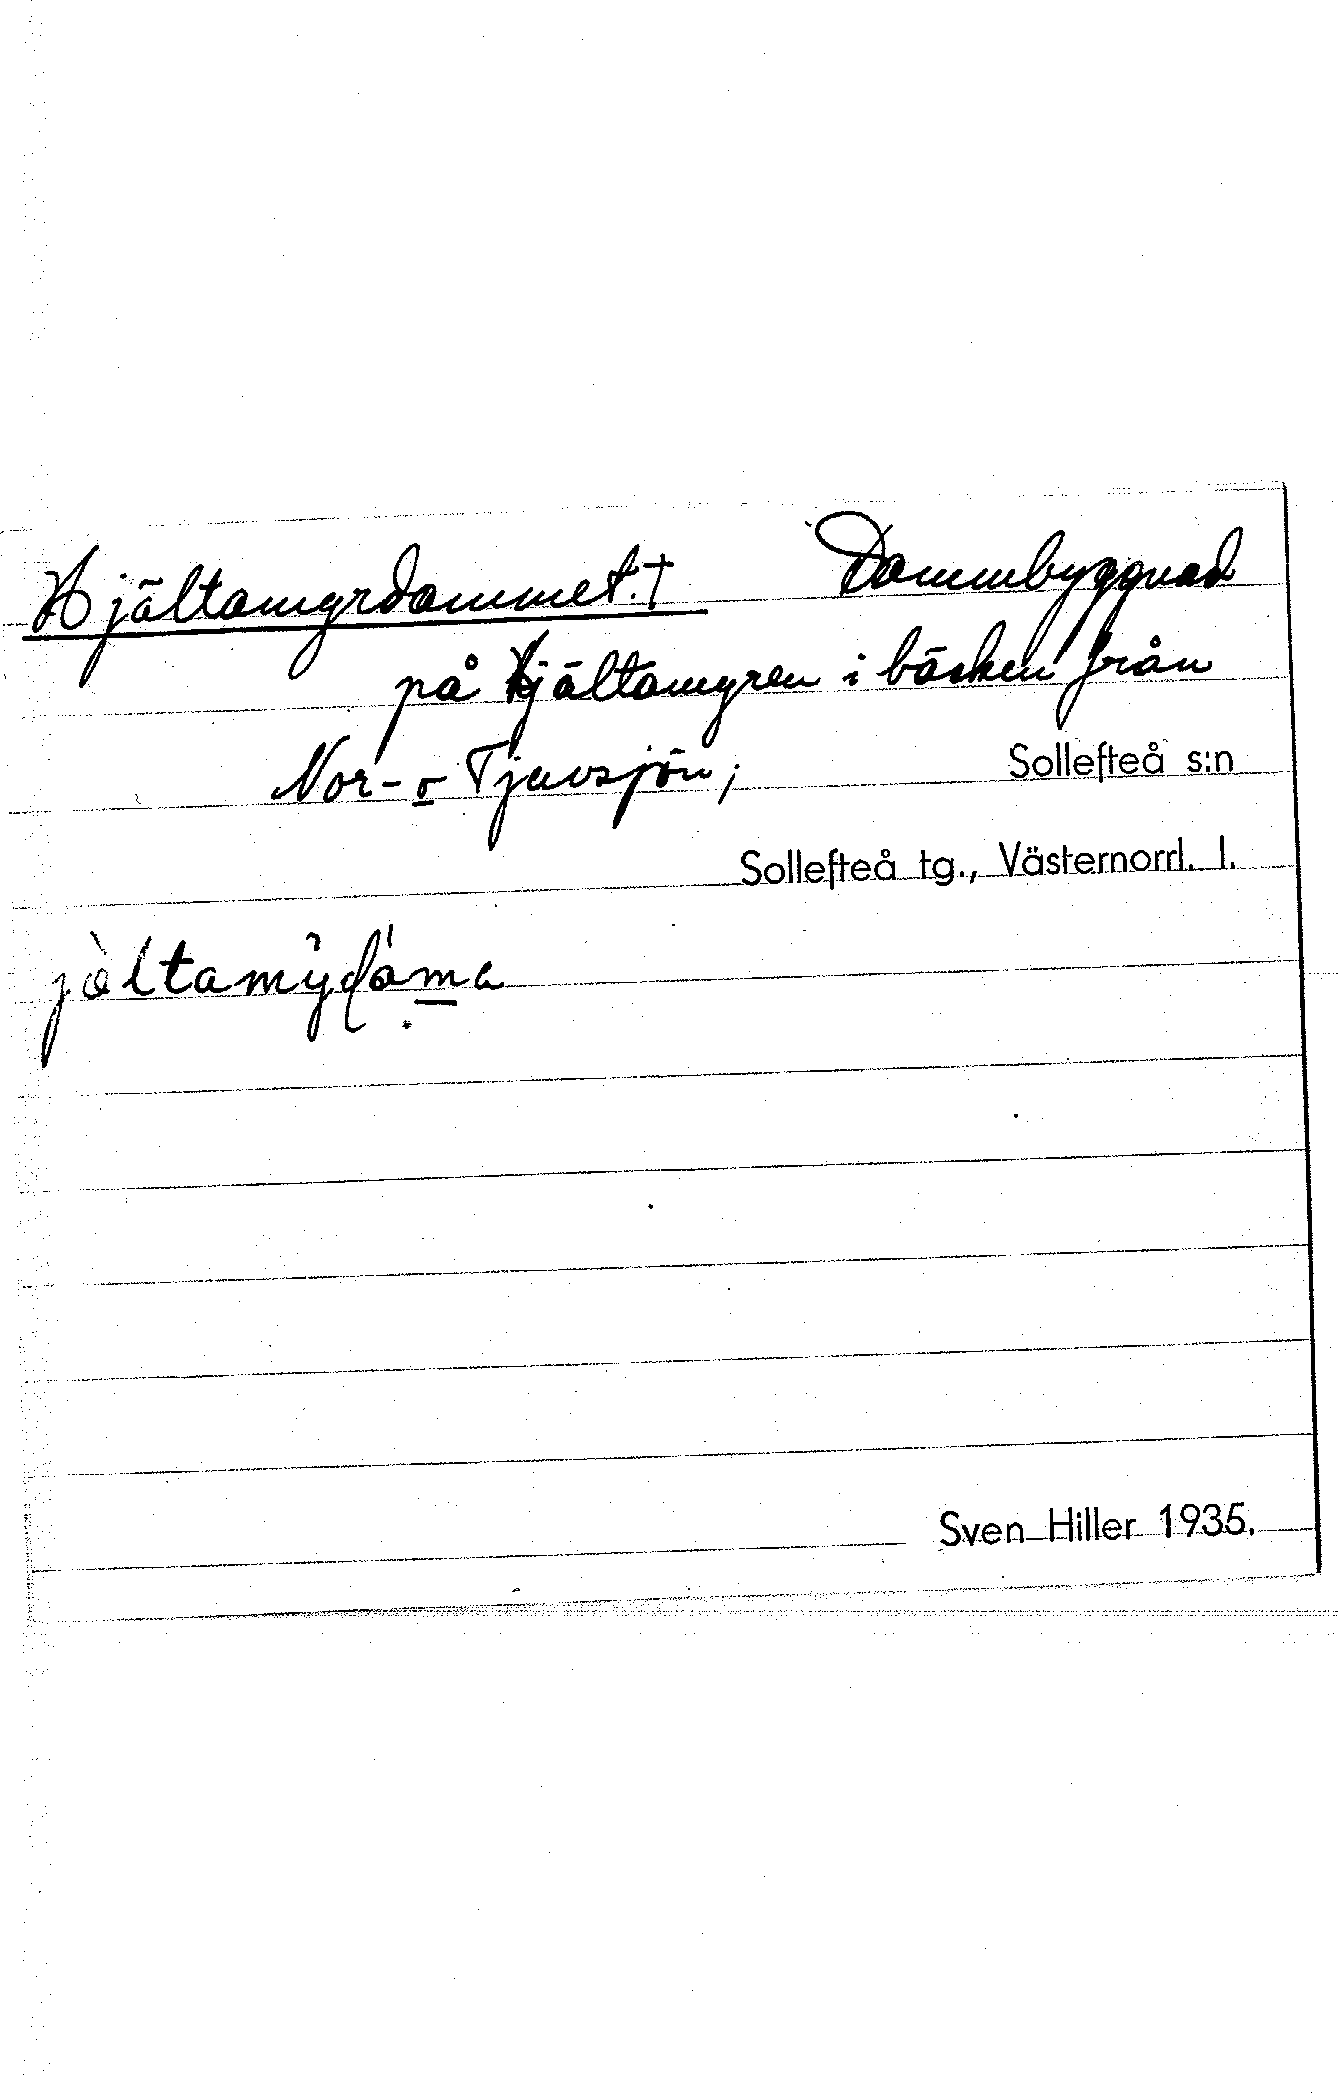 Hjältamyrdammet.† Dammbyggnad
på Hjältamyren i bäcken från
Nor- o Tjuvsjön; Sollefteå s:n
Sollefteå tg., Västernorrl. l.
jæ̀ltamy̆dáma
Sven Hiller 1935.